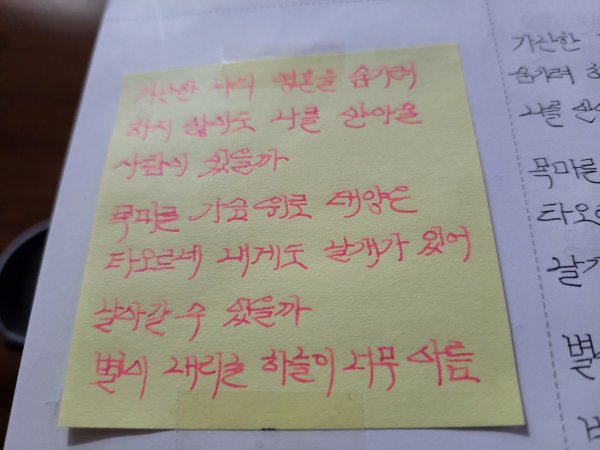 가난한 자의 영혼을 숨기려
하지 않아도 나를 안아줄
사람이 있을까
목마른 가슴 위로 태양은
타오르네 내게도 날개가 있어
날아갈 수 있을까
별이 내리는 하늘이 너무 아름
가난한
숨기려 하
나를 안
목마른
타오
날
별